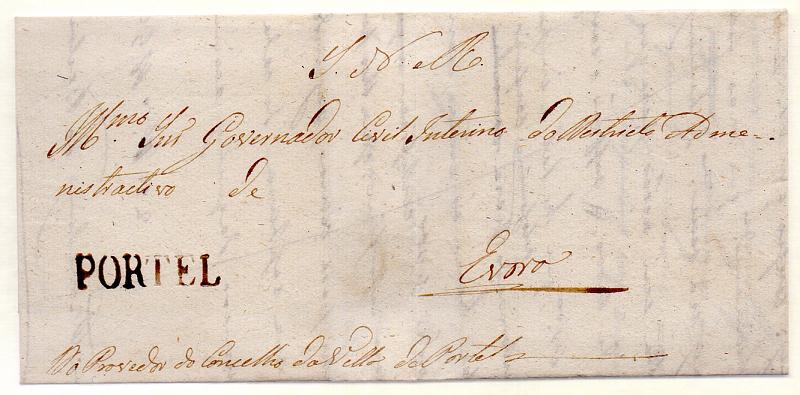 S. N. R.
Illmo. Snr. Governador Civil Interino do Destricto Adme-
nistractivo de
PORTEL
Evora
Do Provedor do Concelho da Villa de Portel